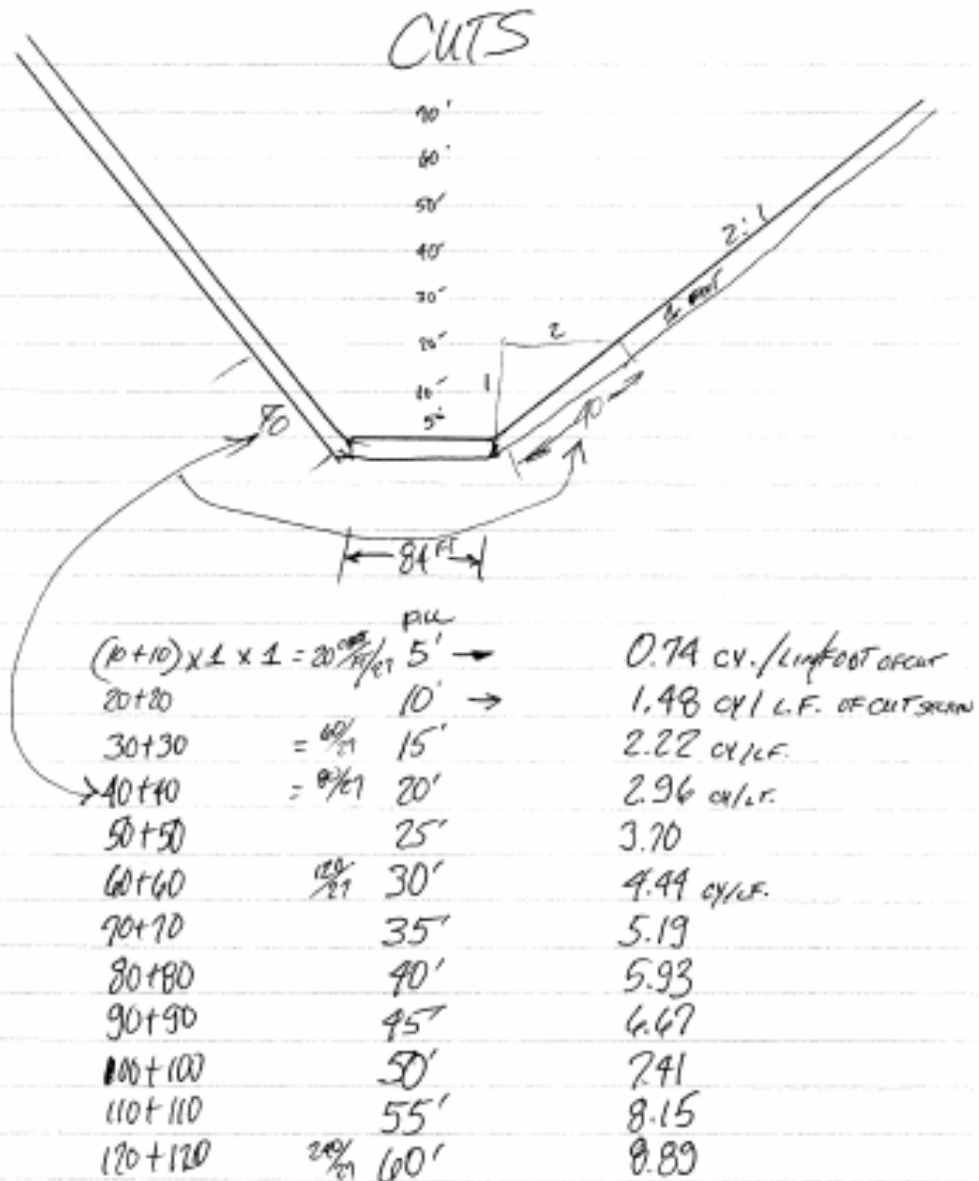 CUTS
70'
60'
50'
40'
30'
20'
10'
5'
2:1
2
1
40
84 FT
(10+10) x 1 x 1 = 20 /27 5' → 0.74 CY./LIN FOOT OF CUT
20+20 10' → 1.48 CY/L.F. OF CUT SECTION
30+30 = 60/27 15' 2.22 CY/LF.
40+40 = 80/27 20' 2.96 CY/LF.
50+50 25' 3.70
60+60 120/27 30' 4.44 CY/LF.
70+70 35' 5.19
80+80 40' 5.93
90+90 45' 6.67
100+100 50' 7.41
110+110 55' 8.15
120+120 240/27 60' 8.89